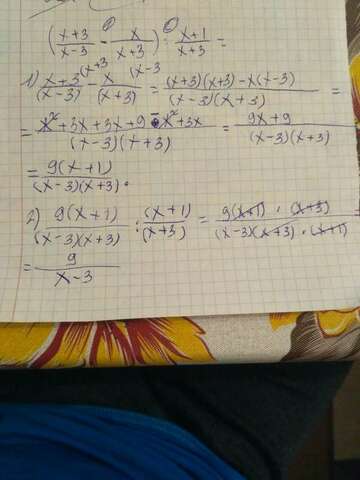 (x+3/x-3 - x/x+3) : x+1/x+3 =
1) x+3/(x-3) (x+3 - x/(x+3) (x-3 = (x+3)(x+3)-x(x-3)/(x-3)(x+3) =
= x²+3x+3x+9-x²+3x/(x-3)(x+3) = 9x+9/(x-3)(x+3) =
= 9(x+1)/(x-3)(x+3).
2) 9(x+1)/(x-3)(x+3) : (x+1)/(x+3) = 9(x+1)·(x+3)/(x-3)(x+3)·(x+1)
= 9/x-3